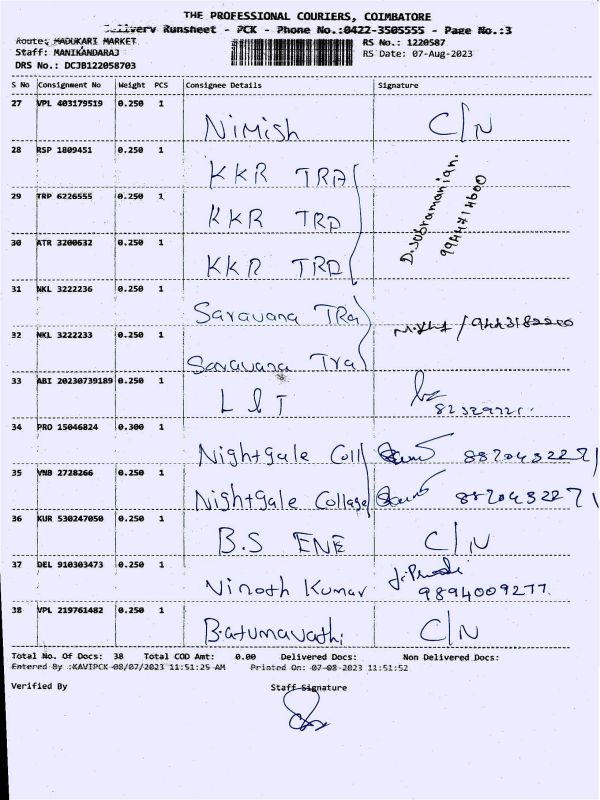 THE PROFESSIONAL COURIERS, COIMBATORE
Delivery Runsheet - PCK - Phone No.:0422-3505555 - Page No.:3
Route: MADUKARI MARKET
RS No.: 1220587
Staff: MANIKANDARAJ
RS Date: 07-Aug-2023
DRS No.: DCJB122058703
S No Consignment No Weight PCS Consignee Details Signature
27 VPL 403179519 0.250 1
Nimish C/N
28 RSP 1809451 0.250 1
KKR TRA
D. Subramanian.
29 TRP 6226555 0.250 1
KKR TRA
30 ATR 3200632 0.250 1
KKR TRA
31 NKL 3222236 0.250 1
Saravana TRa
32 NKL 3222233 0.250 1
Saravana Tra
33 ABI 20230739189 0.250 1
L & T
34 PRO 15046824 0.300 1
Nightgale Coll
35 VNB 2728266 0.250 1
Nightgale Collage
36 KUR 530247050 0.250 1
B.S ENE C/N
37 DEL 910303473 0.250 1
Vinoth Kumar 9894009277
38 VPL 219761482 0.250 1
C/N
Total No. Of Docs: 38 Total COD Amt: 0.00 Delivered Docs: Non Delivered Docs:
Entered By :KAVIPCK 08/07/2023 11:51:25 AM Printed On: 07-08-2023 11:51:52
Verified By Staff Signature